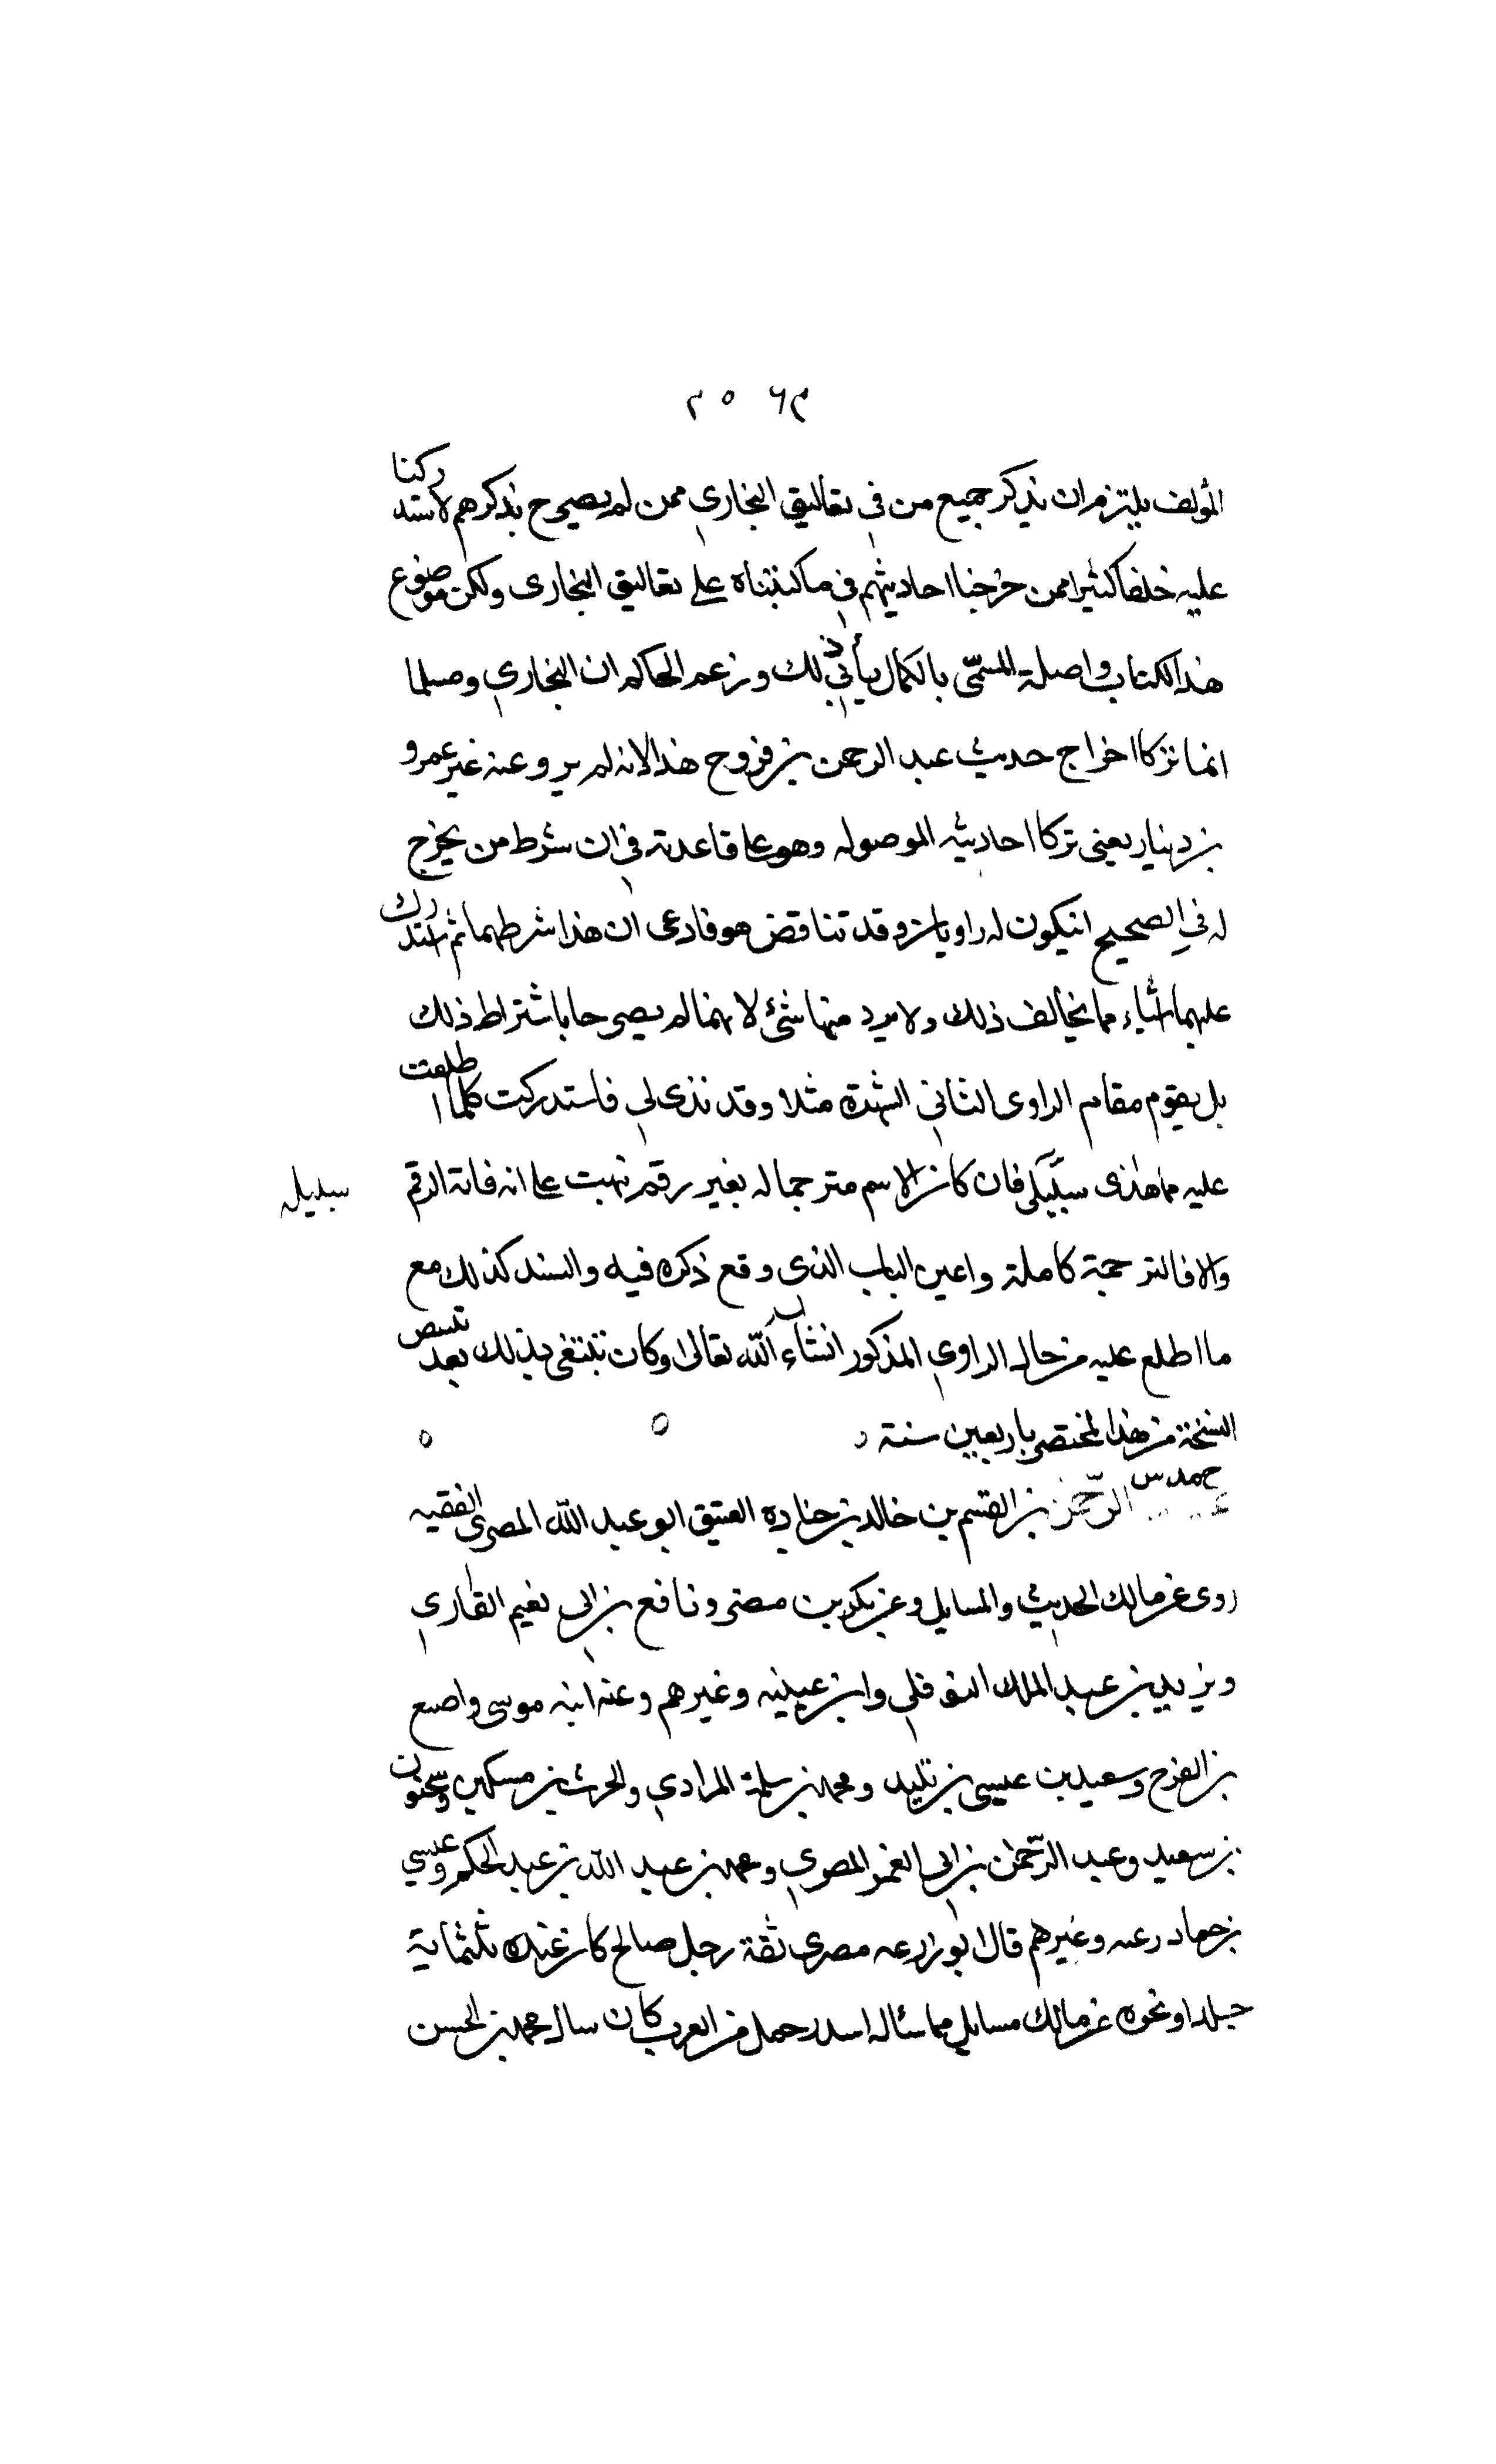 المؤلف يلتزم ان يذكر جميع من في تعاليق البخاري ممن لم يصرح بذكرهم لاستدركنا
عليه خلفا كثيرا ممن خرجنا احاديثهم في ما كتبناه على تعاليق البخارى ولكن موضوع
هذا الكتاب واصله المسمّى بالكمال يأبي ذلك وزعم الحاكم ان البخاري ومسلما
انما تركا اخراج حديث عبد الرحمن بن فروح هذا لانه لم يرو عنه غير عمرو
بن دينار يعنى تركا احاديثه الموصوله وهو على قاعدته في ان شرط من يخرج
له في الصحيح انيكون له راويان وقد تناقض هو فادعى ان هذا شرطهما ثم استدرك
عليهما اشياء مما يخالف ذلك ولا يرد منها شئ لانهما لم يصرحا باشتراط ذلك
بل يقوم مقام الراوى الثاني الشهرة مثلا وقد نذى لي فاستدركت كلما اطلعت
عليه مما هذى سبيلى فان كان الاسم مترجما له بغير رقم نبهت على انه فاته الرقم
سبيله
والا فالترجمة كاملة واعين الباب الذى وقع ذكره فيه والسند كذلك مع
ما اطلع عليه من حال الراوي المذكور انشاء الله تعالى وكان تبتغى بذلك بعد تبيض
النسخة من هذا المختصر باربعين سنة
عبد الرّحمن بن القسم بن خالد بن جناده العتيق ابو عبد الله المصرى الفقيه
روى عن مالك الحديث والمسايل وعن بكر بن مضر ونافع بن ابي نعيم القاري
ويزيد بن عبد الملك النوفلي وابن عيينه وغيرهم وعنه ابنه موسى واصبع
بن الفرح وسعيد بن عيسى بن تليد ومحمد بن سلمة المرادي والحرث بن مسكين وسحنون
بن سعيد وعبد الرّحمن بن ابي الغمر المصري ومحمد بن عبد الله بن عبد الحكم وعيسي
بن حماد زغبه وغيرهم قال ابو زرعه مصري ثقة رجل صالح كان عنده ثلثماية
جلد او نحوه عن مالك مسايل مما سئاله اسد رجل من العرب كان سال محمد بن الحسن